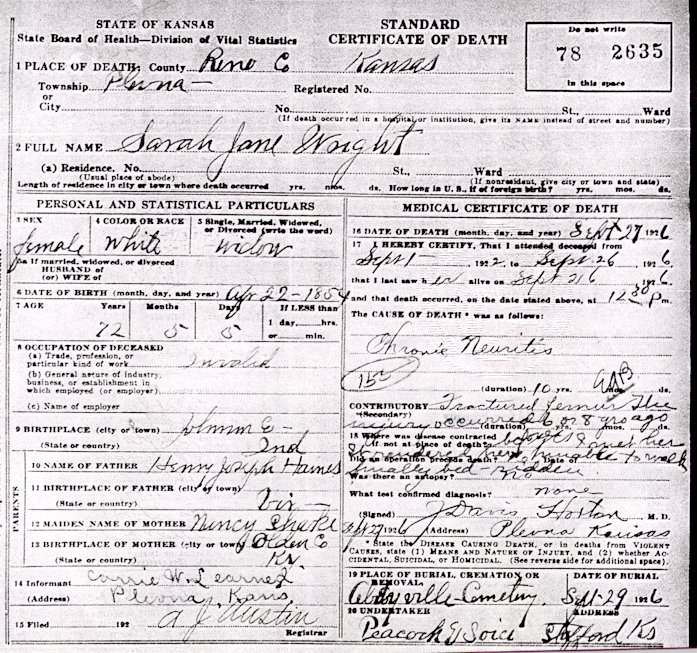 STATE OF KANSAS
State Board of Health—Division of Vital Statistics
STANDARD
CERTIFICATE OF DEATH
Do not write
78 2635
In this space
1 PLACE OF DEATH: County Reno Co Kansas
Township Plevna — Registered No.
or
City No. St., Ward
(If death occurred in a hospital or institution, give its NAME instead of street and number)
2 FULL NAME Sarah Jane Wright
(a) Residence. No. St., Ward
(Usual place of abode) (If nonresident, give city or town and state)
Length of residence in city or town where death occurred yrs. mos. ds. How long in U. S., if of foreign birth? yrs. mos. ds.
PERSONAL AND STATISTICAL PARTICULARS
3 SEX
female
4 COLOR OR RACE
White
5 Single, Married, Widowed, or Divorced (write the word)
widow
5a If married, widowed, or divorced
HUSBAND of
(or) WIFE of
6 DATE OF BIRTH (month, day, and year) Apr 22 - 1854
7 AGE Years Months Days If LESS than
72 5 5 1 day, hrs.
or min.
8 OCCUPATION OF DECEASED
(a) Trade, profession, or
particular kind of work Invalid
(b) General nature of industry,
business, or establishment in
which employed (or employer)
(c) Name of employer
9 BIRTHPLACE (city or town)
(State or country) Ind
PARENTS
10 NAME OF FATHER Henry Joseph Haines
11 BIRTHPLACE OF FATHER (city or town)
(State or country) Vir —
12 MAIDEN NAME OF MOTHER Nancy
13 BIRTHPLACE OF MOTHER (city or town) Olden Co
(State or country) Ky
14 Informant Carrie W. Learned
(Address) Plevna, Kans,
15 Filed 192 A J Austin
Registrar
MEDICAL CERTIFICATE OF DEATH
16 DATE OF DEATH (month, day, and year) Sept 27 1926
17 I HEREBY CERTIFY, That I attended deceased from
Sept 1 - 1922 to Sept 26, 1926
that I last saw her alive on Sept 26 1926
and that death occurred, on the date stated above, at 12 30 P m.
The CAUSE OF DEATH * was as follows:
Chronic Neuritis
(duration) 10 yrs. mos. ds.
CONTRIBUTORY Fractured femur the
(Secondary)
injury occurred 6 or 8 yrs ago
(duration) yrs. mos. ds.
18 Where was disease contracted
if not at place of death?
Did an operation precede death? Date of
finally bed-ridden
Was there an autopsy? no
What test confirmed diagnosis? none
(Signed) J Davis Horton M. D.
Sept 27 1926 (Address) Plevna Kansas
* State the DISEASE CAUSING DEATH, or in deaths from VIOLENT
CAUSES, state (1) MEANS AND NATURE OF INJURY, and (2) whether AC-
CIDENTAL, SUICIDAL, or HOMICIDAL. (See reverse side for additional space.)
19 PLACE OF BURIAL, CREMATION OR REMOVAL
Abbyville-Cemetery,
DATE OF BURIAL
Sept-29 1926
20 UNDERTAKER
Peacock & Soice
ADDRESS
Stafford Ks